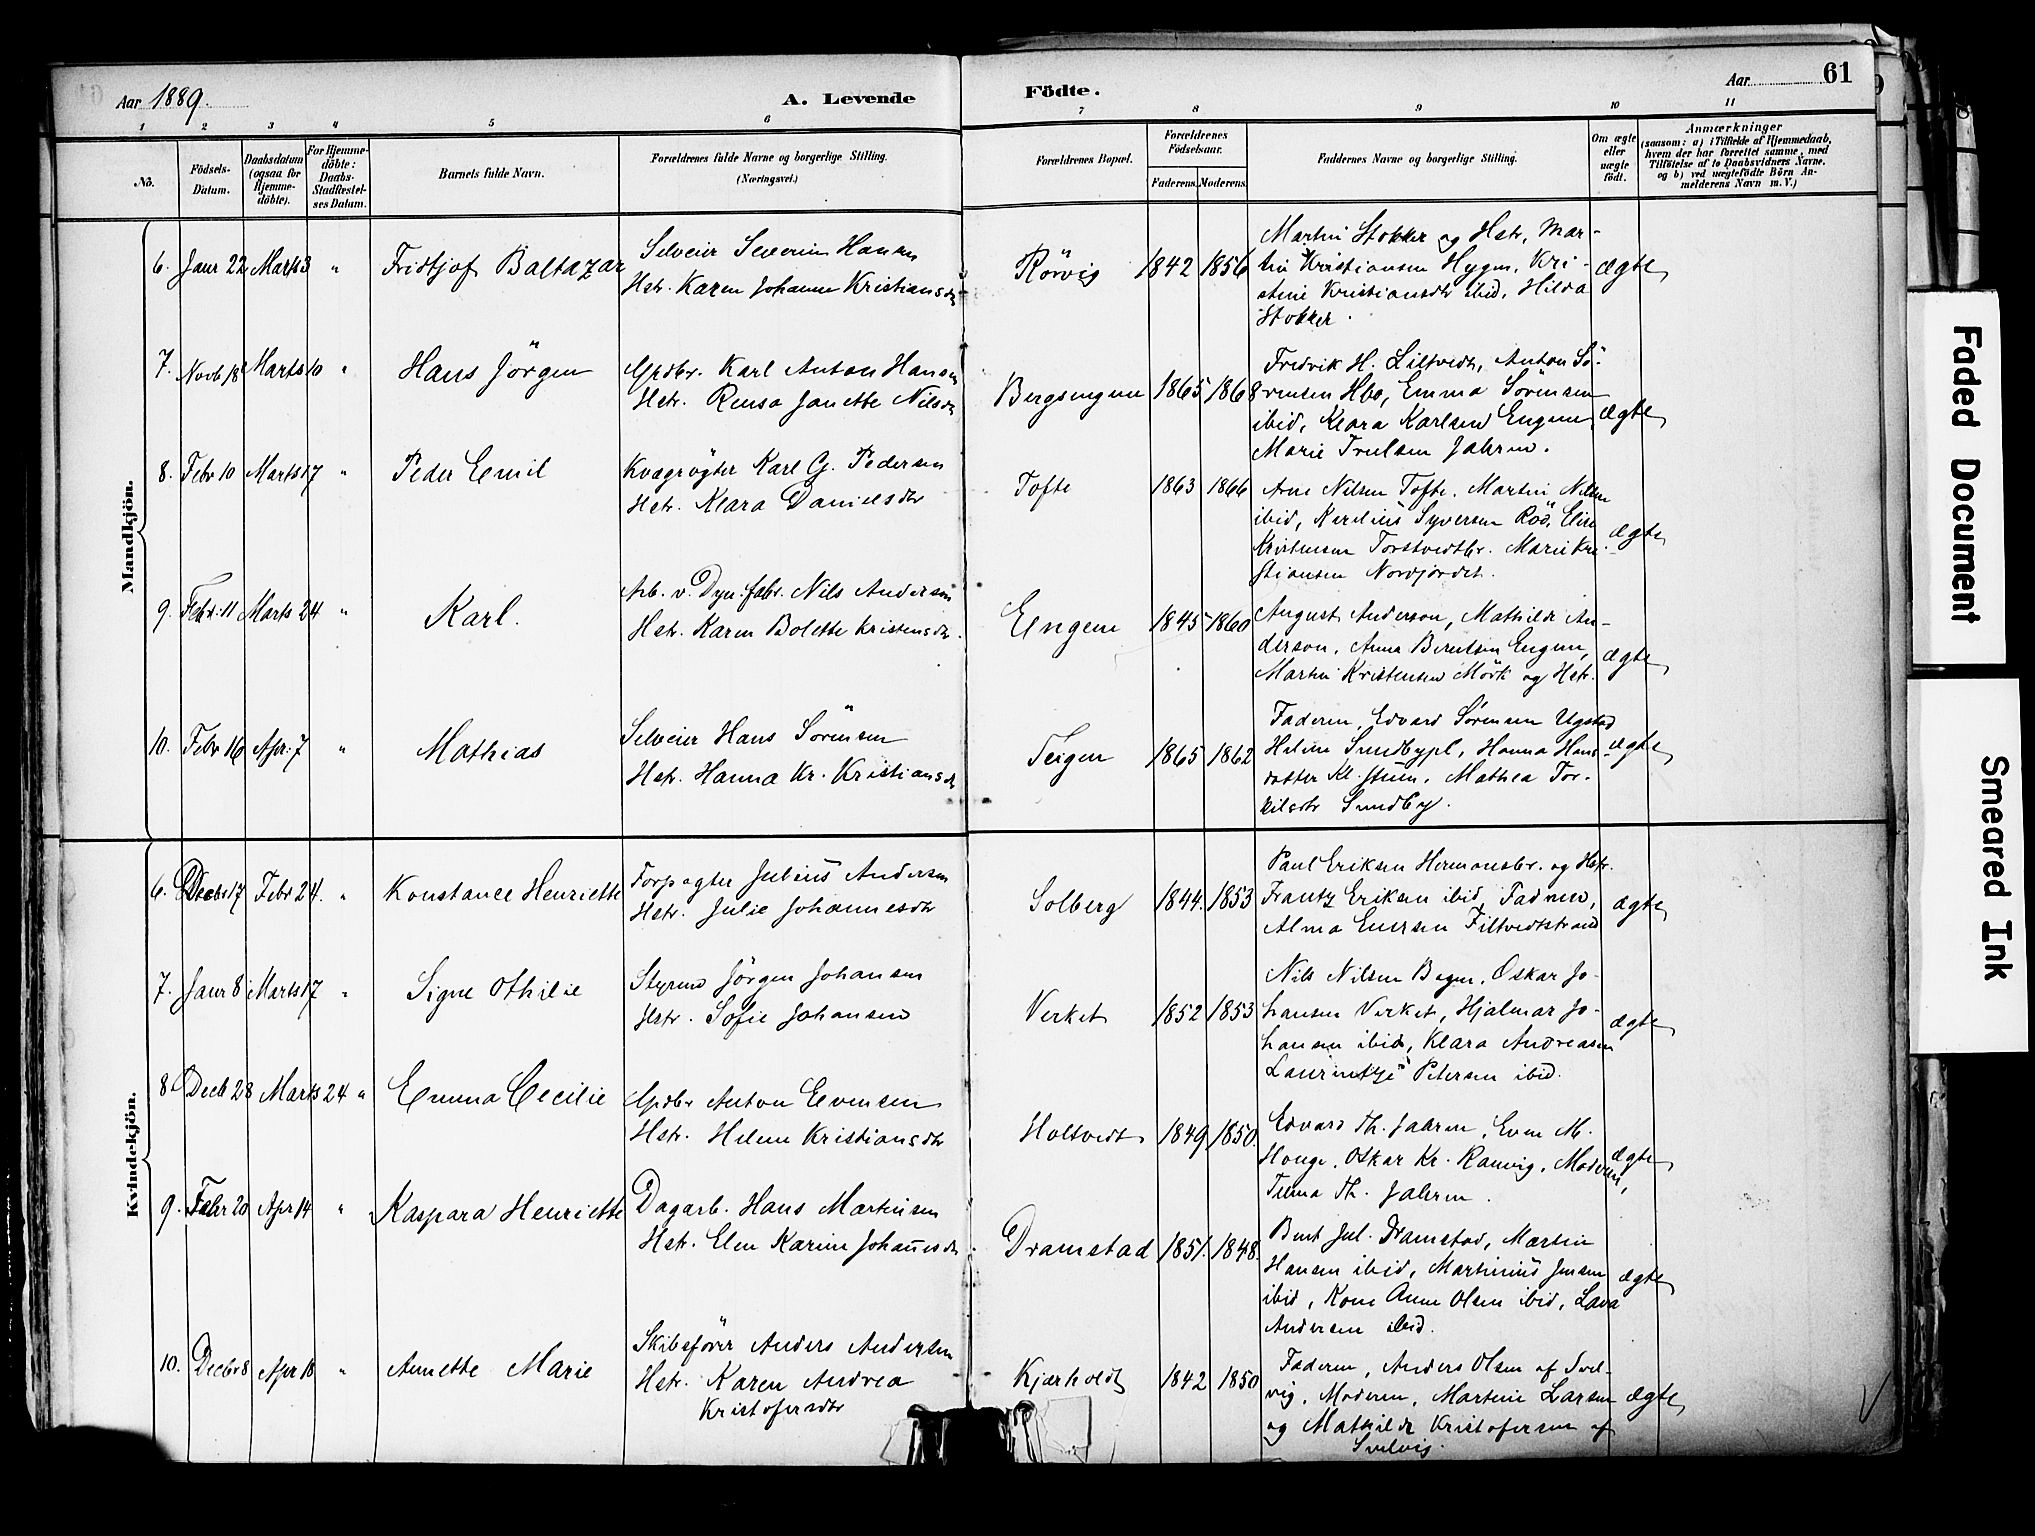 Aar 1889.
A. Levende Födte.
Aar 61
1 2 3 4 5 6 7 8 9 10 11
No.
Födsels-Datum.
Daabsdatum (ogsaa for Hjemme-döbte).
For Hjemme-döbte: Daabs-Stadfæstel-ses Datum.
Barnets fulde Navn.
Forældrenes fulde Navne og borgerlige Stilling.
(Næringsvei.)
Forældrenes Bopæl.
Forældrenes Födselsaar.
Faderens. Moderens.
Faddernes Navne og borgerlige Stilling.
Om ægte eller uægte födt.
Anmærkninger
(saasom: a) i Tilfælde af Hjemmedaab, hvem der har forrettet samme, med Tilföielse af to Daabsvidners Navne, og b) ved uægtefödte Börn An-melderens Navn m. V.)
Mandkjön.
6. Janr 22 Marts 3 " Fridtjof Baltazar
Selveier Severin Hansen
Hstr. Karen Johanne Kristiansdr
Rörvig 1842 1856
Martin Stokker og Hstr, Mar-
tin Kristiansen Hygen, Kri-
stine Kristiansdtr ibid, Hilda
Stokker.
Ægte
7. Novb 18 Marts 10 " Hans Jörgen
Gpdbr. Karl Anton Hansen
Hstr. Rensa Janette Nilsdr
Bergsengen 1865 1868
Fredrik H. Liltvedt, Anton Sö-
rensen Hbo, Emma Sörensen
ibid, Klara Karlsen Engene
Marie Trulsen Jahren.
Ægte
8. Febr 10 Marts 17 " Peder Emil
Kvægrögter Karl G. Pedersen
Hstr. Klara Danielsdtr
Tofte 1863 1866
Arne Nilsen Tofte, Martin Nilsen
ibid, Karelius Syversen Röd, Elise
Kristensen Torstvedtbr. Marie Kri-
stiansen Nordjordet.
Ægte
9. Febr. 11 Marts 24 " Karl.
Arb. v. Dyn. fabr. Nils Andersen
Hstr. Karen Bolette Kristensdtr.
Engene 1845 1860
August Anderson, Mathilde An-
derson, Anna Berntsen Engene,
Martin Kristensen Mörk og Hstr.
Ægte
10. Febr 16 Apr. 7 " Mathias
Selveier Hans Sörensen
Hstr. Hanna Kr. Kristiansdr
Teigen 1865 1862
Faderen, Edvard Sörensen Ugstad
Helene Sundbypl, Hanna Hans-
datter Kl. , Mathea Tor-
kilsdtr Sundby.
Ægte
Kvindekjön.
6. Decbr 17 Febr 24. " Konstance Henriette
Forpagter Julius Andersen
Hstr. Julie Johannesdtr
Solberg 1844. 1853
Paul Eriksen Hermansbr. og Hstr.
Frantz Eriksen ibid, Faderen,
Alma Enersen Filtvedtstrand
Ægte
7. Janr 8 Marts 17 " Signe Othilie
Styrmd Jörgen Johansen
Hstr. Sofie Johansen
Verket 1852 1853
Nils Nilsen Bogen, Oskar Jo-
hansen Verket, Hjalmar Jo-
hansen ibid, Klara Andreasen
Laurentze Petersen ibid.
Ægte
8. Decb 28 Marts 24 " Emma Cecilie
Gpdbr Anton Evensen
Hstr. Helene Kristiansdtr
Holtvedt 1849 1850
Edvard Th. Jahren, Even M.
Houge, Oskar Kr. Ramvig, Moderen,
Tilma Th. Jahren.
Ægte
9. Febr 20 Apr 14 " Kaspara Henriette
Dagarb. Hans Martinsen
Hstr. Elen Karine Johannesdtr.
Dramstad 1851. 1848.
Bent Jul. Dramstad, Martin
Hansen ibid, Martinius Jensen
ibid, Karen Anne Olsen ibid, Lava
Andersen ibid.
Ægte
10. Decbr 8 Apr 18 " Annette Marie
Skibsförer Anders Andersen
Hstr. Karen Andrea
Kristofersdtr
Kjærholdt 1842 1850
Faderen, Anders Olsen af Svel-
vig, Moderen, Martine Larsen
og Mathilde Kristofersen af
Svelvig.
Ægte
Faded Document
Smeared Ink